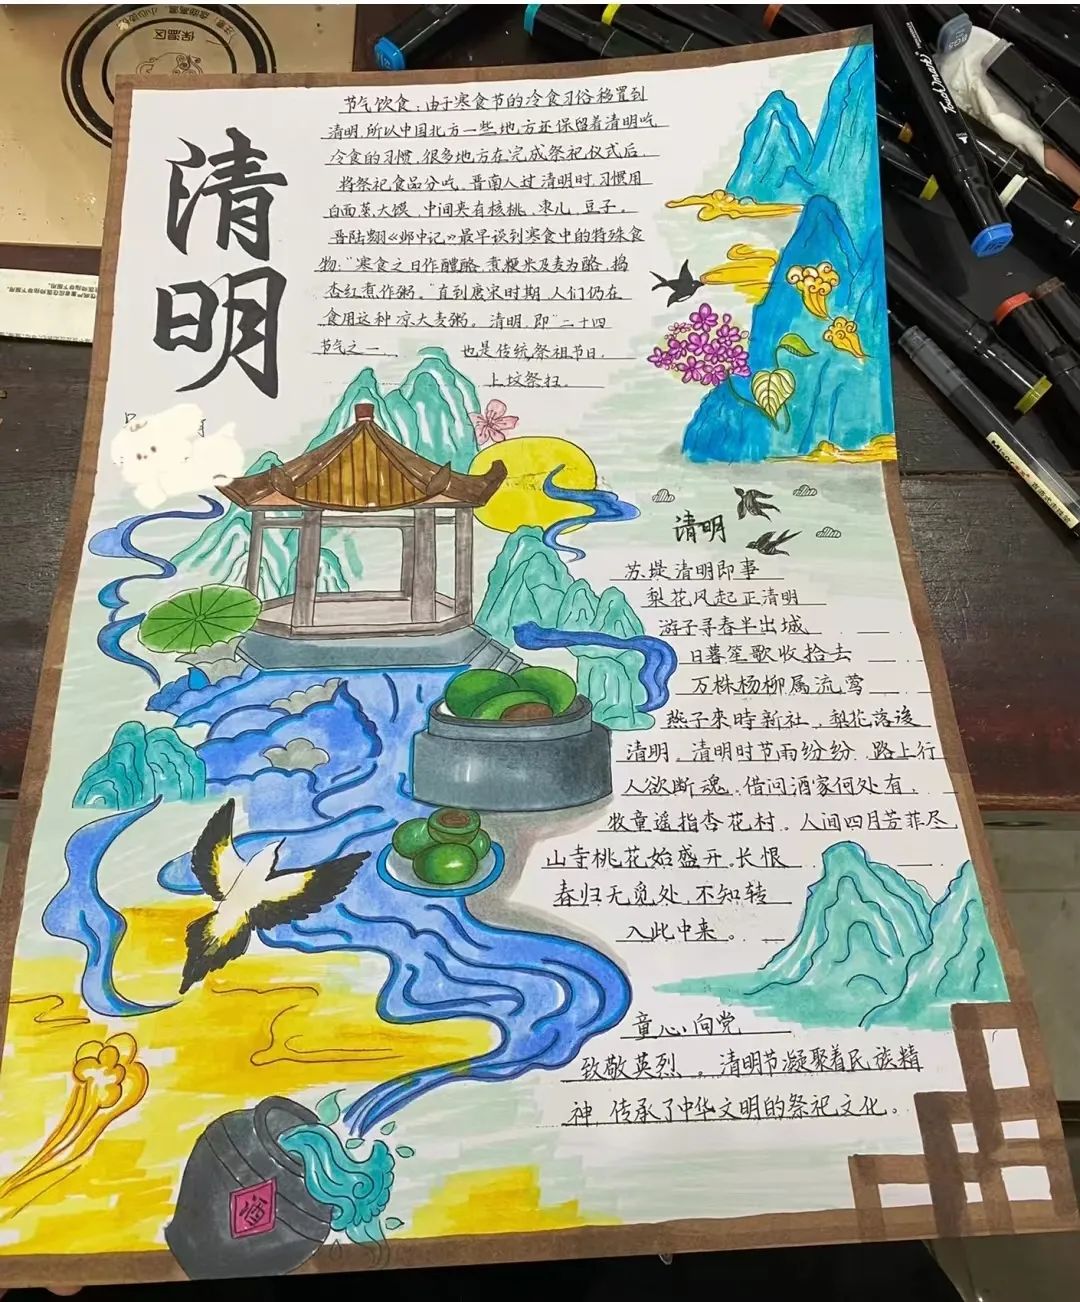 清明
节气饮食：由于寒食节的冷食习俗移置到
清明，所以中国北方一些地方还保留着清明吃
冷食的习惯，很多地方在完成祭祀仪式后，
将祭祀食品分吃。晋南人过清明时，习惯用
白面蒸大馍，中间夹有核桃、枣儿、豆子。
晋陆翙《邺中记》最早谈到寒食中的特殊食
物：“寒食之日作醴酪，煮粳米及麦为酪，捣
杏红煮作粥。”直到唐宋时期，人们仍在
食用这种凉大麦粥。清明，即“二十四
节气之一、 也是传统祭祖节日，
上坟祭扫。
清明
苏堤清明即事
梨花风起正清明
游子寻春半出城
日暮笙歌收拾去
万株杨柳属流莺
燕子来時新社，梨花落後
清明。清明时节雨纷纷，路上行
人欲断魂，借问酒家何处有，
牧童遥指杏花村。人间四月芳菲尽
山寺桃花始盛开，长恨
春归无觅处，不知转
入此中来。
童心向党
致敬英烈。清明节凝聚着民族精
神，传承了中华文明的祭祀文化。
酒
保温区
Touch mark